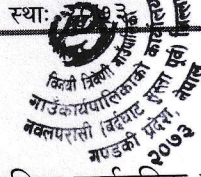 स्था:
विनयी त्रिवेणी गाउँपालिका
गाउँकार्यपालिकाको कार्यालय
नवलपरासी (बर्दघाट सुस्ता पूर्व)
गण्डकी प्रदेश, नेपाल
२०७३